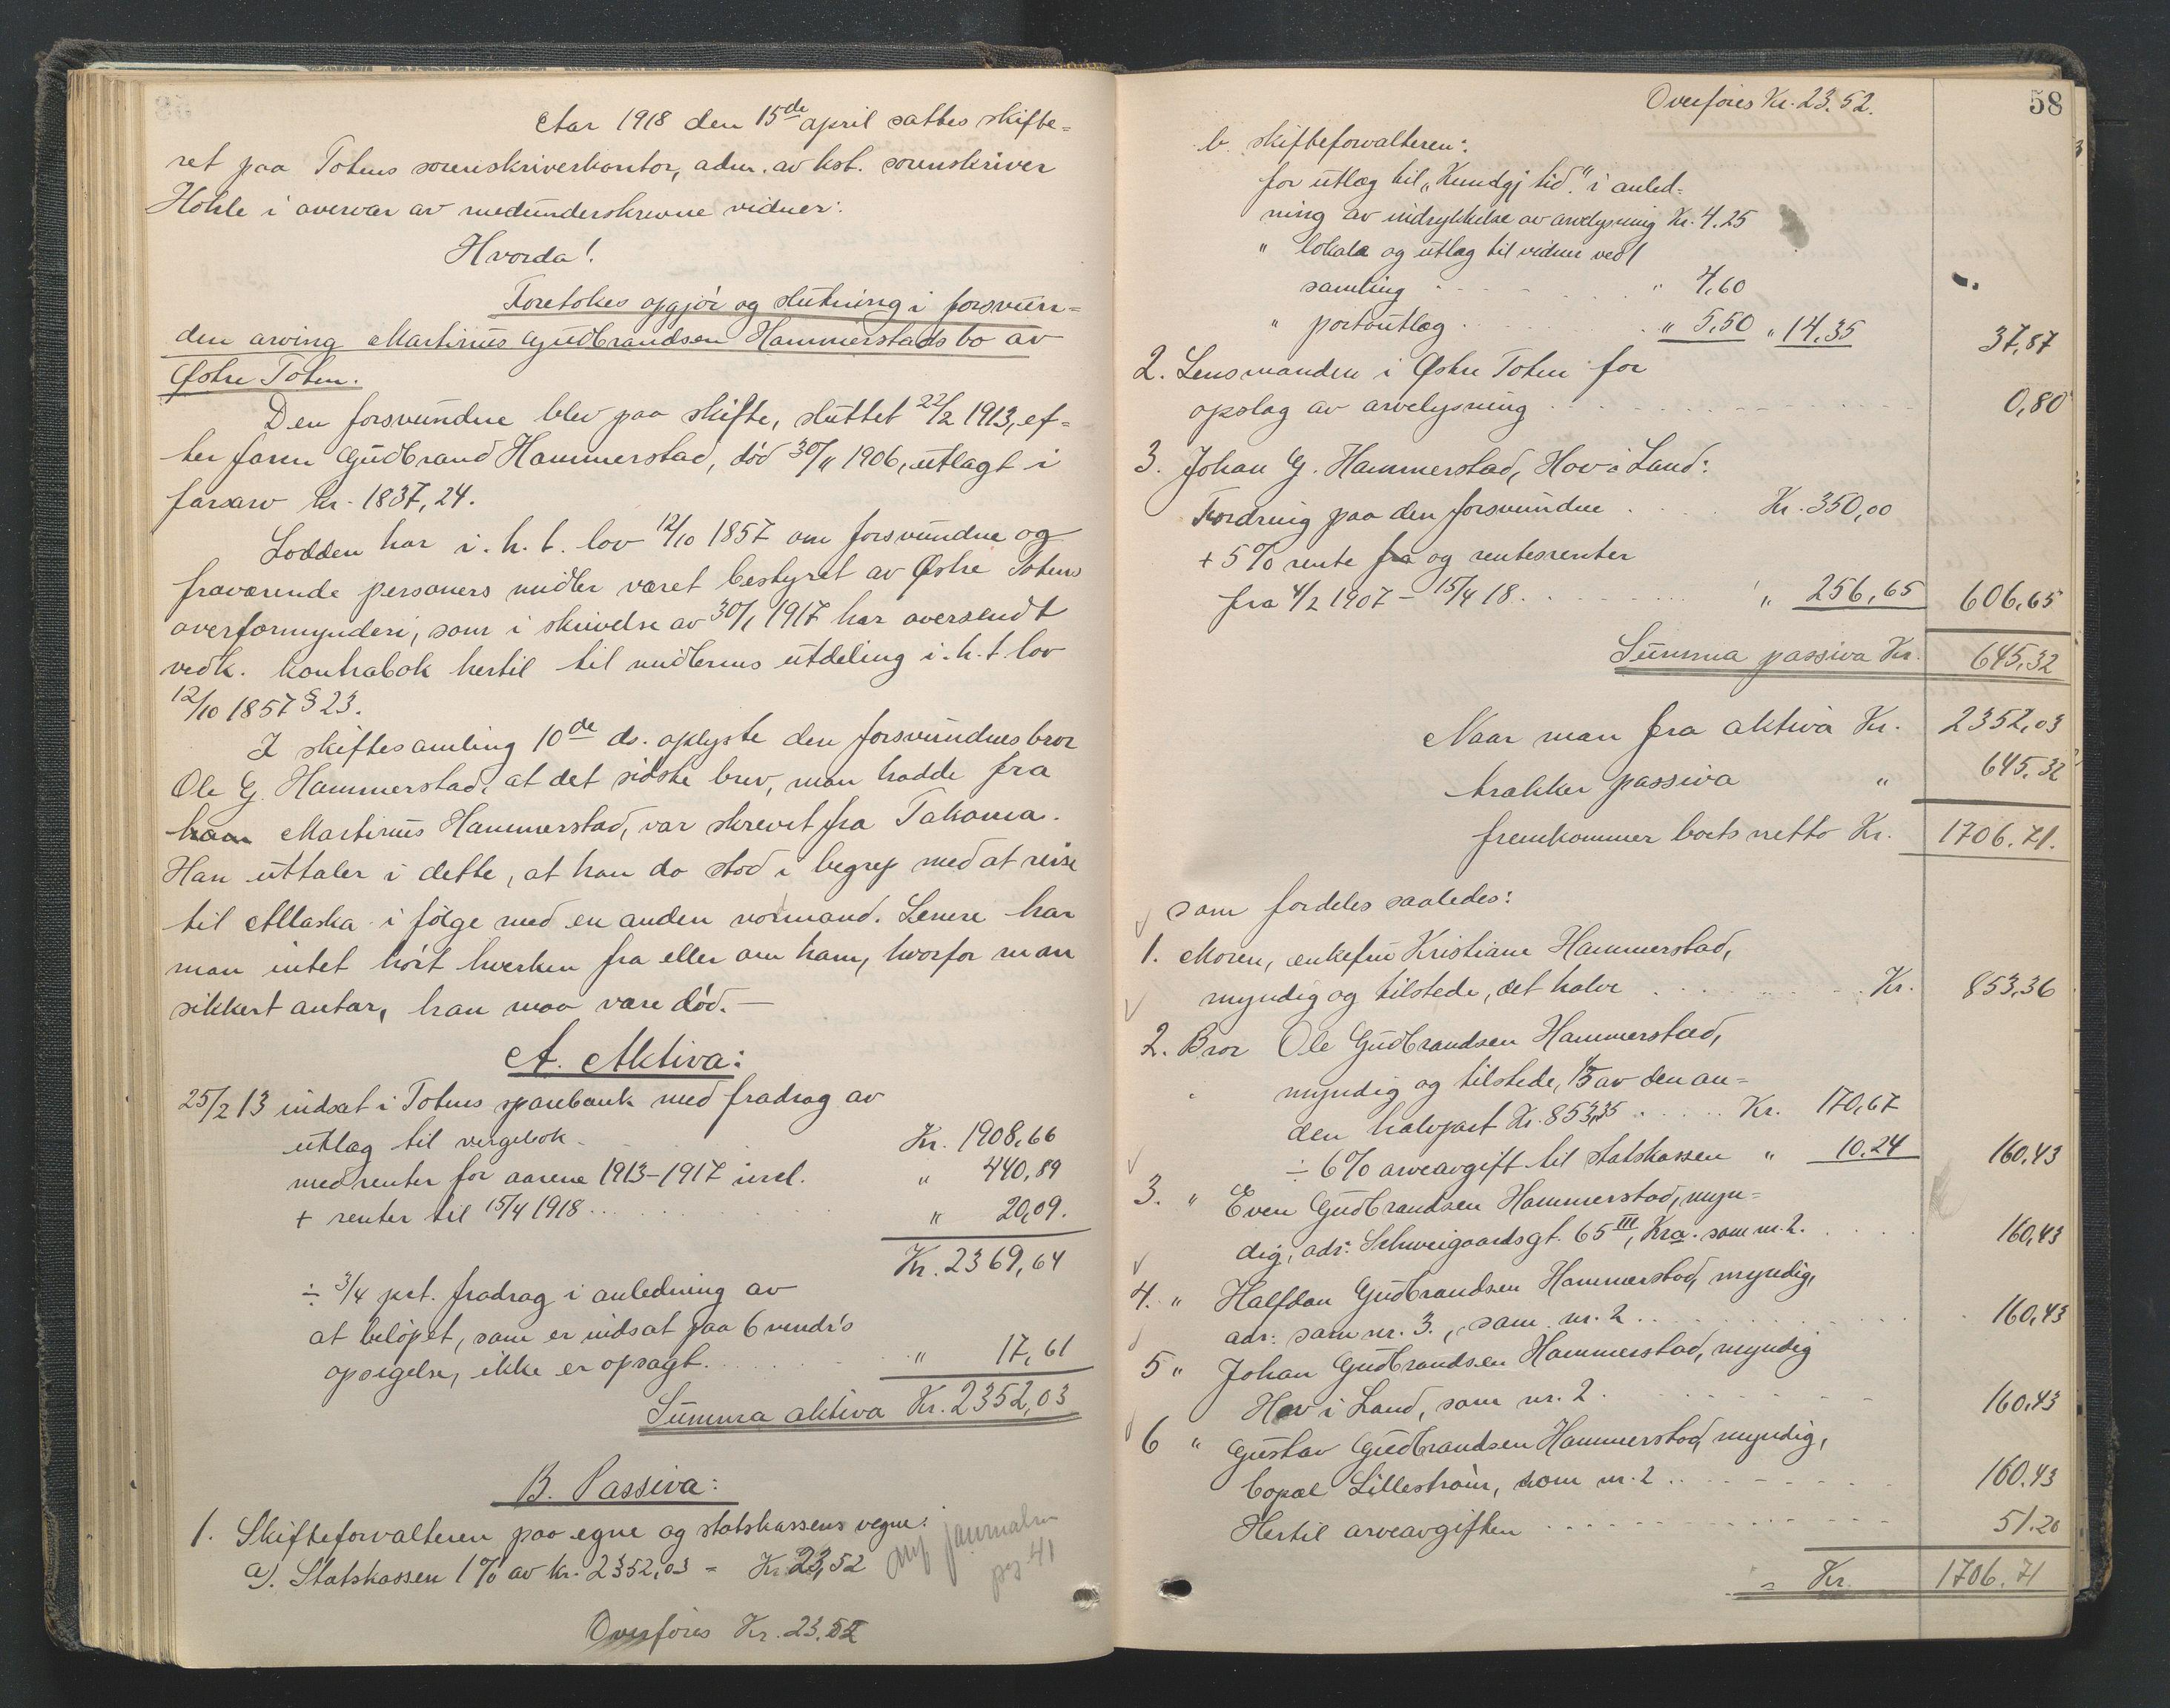 Aar 1918 den 15de april sattes skifte=
ret paa Totens sorenskriverkontor, adm. av kst. sorenskriver
Hokle i overvær av medunderskrevne vidner:
Hvorda!
Foretokes opgjör og slutning i forsvun=
den arving Martinus Gudbrandsen Hammerstads bo av
Østre Toten.
Den forsvundne blev paa skifte, sluttet 22/2 1913, ef=
ter faren Gudbrand Hammerstad, död 30/11 1906, utlagt i
farsarv kr. 1837,24.
Lodden har i. h. t. lov 12/10 1857 om forsvundne og
fraværende personers midler været bestyret av Østre Totens
overformynderi, som i skrivelse av 30/1 1917 har oversendt
vedk. kontrabok hertil til midlernes utdeling i. h. t. lov
12/10 1857 § 23.
I skiftesamling 10de ds. oplyste den forsvundnes bror
Ole G. Hammerstad, at det sidste brev, man hadde fra
ham Martinus Hammerstad, var skrevet fra Takoma.
Han uttaler i dette, at han da stod i begrep med at reise
til Allaska i fölge med en anden normand. Senere har
man intet hört hverken fra eller om ham, hvorfor man
sikkert antar, han maa være död. —
A. Aktiva:
25/2 13 indsat i Totens sparebank med fradrag av
utlæg til vergebok. Kr. 1908,66
med renter for aarene 1913-1917 incl. " 440,89
+ renter til 15/4 1918 ... " 20,09.
Kr. 2369,64
÷ 3/4 pct. fradrag i anledning av
at belöpet, som er indsat paa 6 mndr's
opsigelse, ikke er opsagt. " 17,61
Summa aktiva Kr. 2352,03
B. Passiva:
1. Skifteforvalteren paa egne og statskassens vegne:
a). Statskassen 1% av kr. 2352,03 = Kr. 23,52
journalen
pag 41
Overföres Kr. 23.52
58
Overföres Kr. 23.52.
b. skifteforvalteren:
for utlæg til „Kundgj tid." i anled=
ning av indrykkelse av arvelysning Kr. 4.25
" lokale og utlæg til vidner ved 1
samling " 4,60
" portoutlæg . " 5,50 " 14,35 37,87
2. Lensmanden i Østre Toten for
opslag av arvelysning 0,80
3. Johan G. Hammerstad, Hov i Land:
Fordring paa den forsvundne .... Kr. 350,00
+ 5% rente fra og rentesrenter
fra 4/2 1907 - 15/4 18 " 256,65 606,65
Summa passiva Kr. 645,32
Naar man fra aktiva Kr. 2352,03
trækker passiva " 645,32
fremkommer boets netto Kr. 1706.71.
som fordeles saaledes:
1. Moren, enkefru Kristiane Hammerstad,
myndig og tilstede, det halve Kr. 853,36
2. Bror Ole Gudbrandsen Hammerstad,
myndig og tilstede, 1/5 av den an=
den halvpart Kr. 853,35 ..... Kr. 170,67
÷ 6% arveavgift til statskassen " 10.24 160,43
3. " Even Gudbrandsen Hammerstad, myn=
dig, adr: Schweigaardsgt. 65 III, Kra. som nr. 2. 160,43
4. " Halfdan Gudbrandsen Hammerstad, myndig,
adr: som nr. 3., som nr. 2 160,43
5 " Johan Gudbrandsen Hammerstad, myndig
Hov i Land, som nr. 2 160,43
6 " Gustav Gudbrandsen Hammerstad, myndig,
bopæl Lilleström, som nr. 2 160.43
Hertil arveavgiften 51.20
= Kr. 1706.71